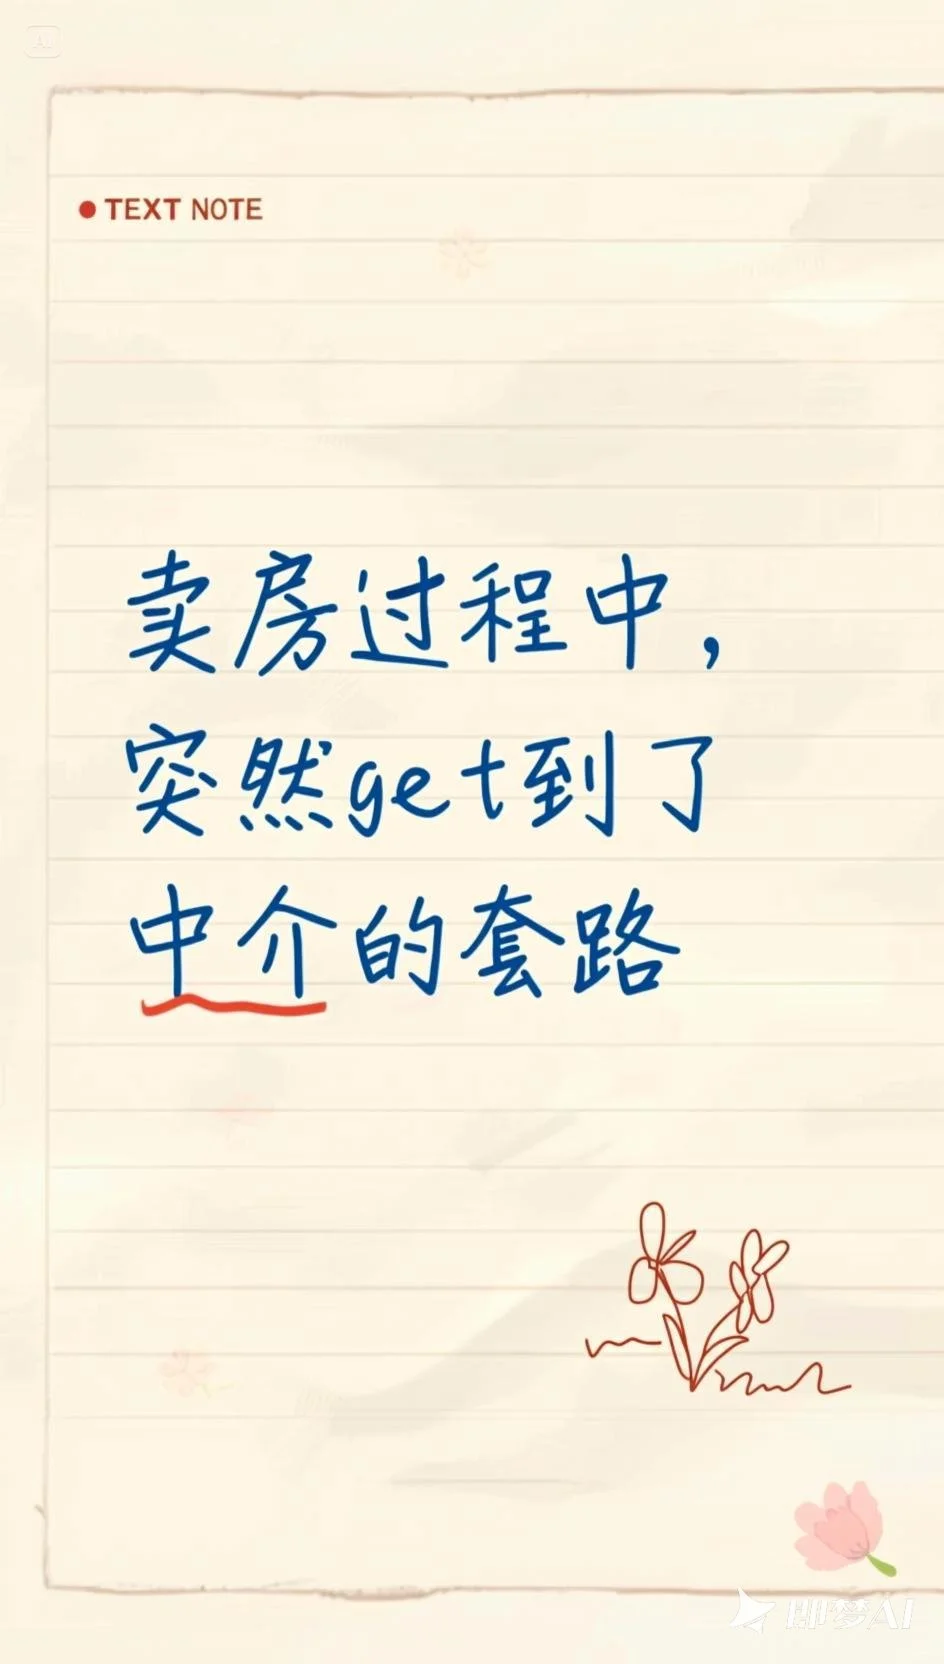 AI
● TEXT NOTE
卖房过程中，
突然get到了
中介的套路
即梦AI